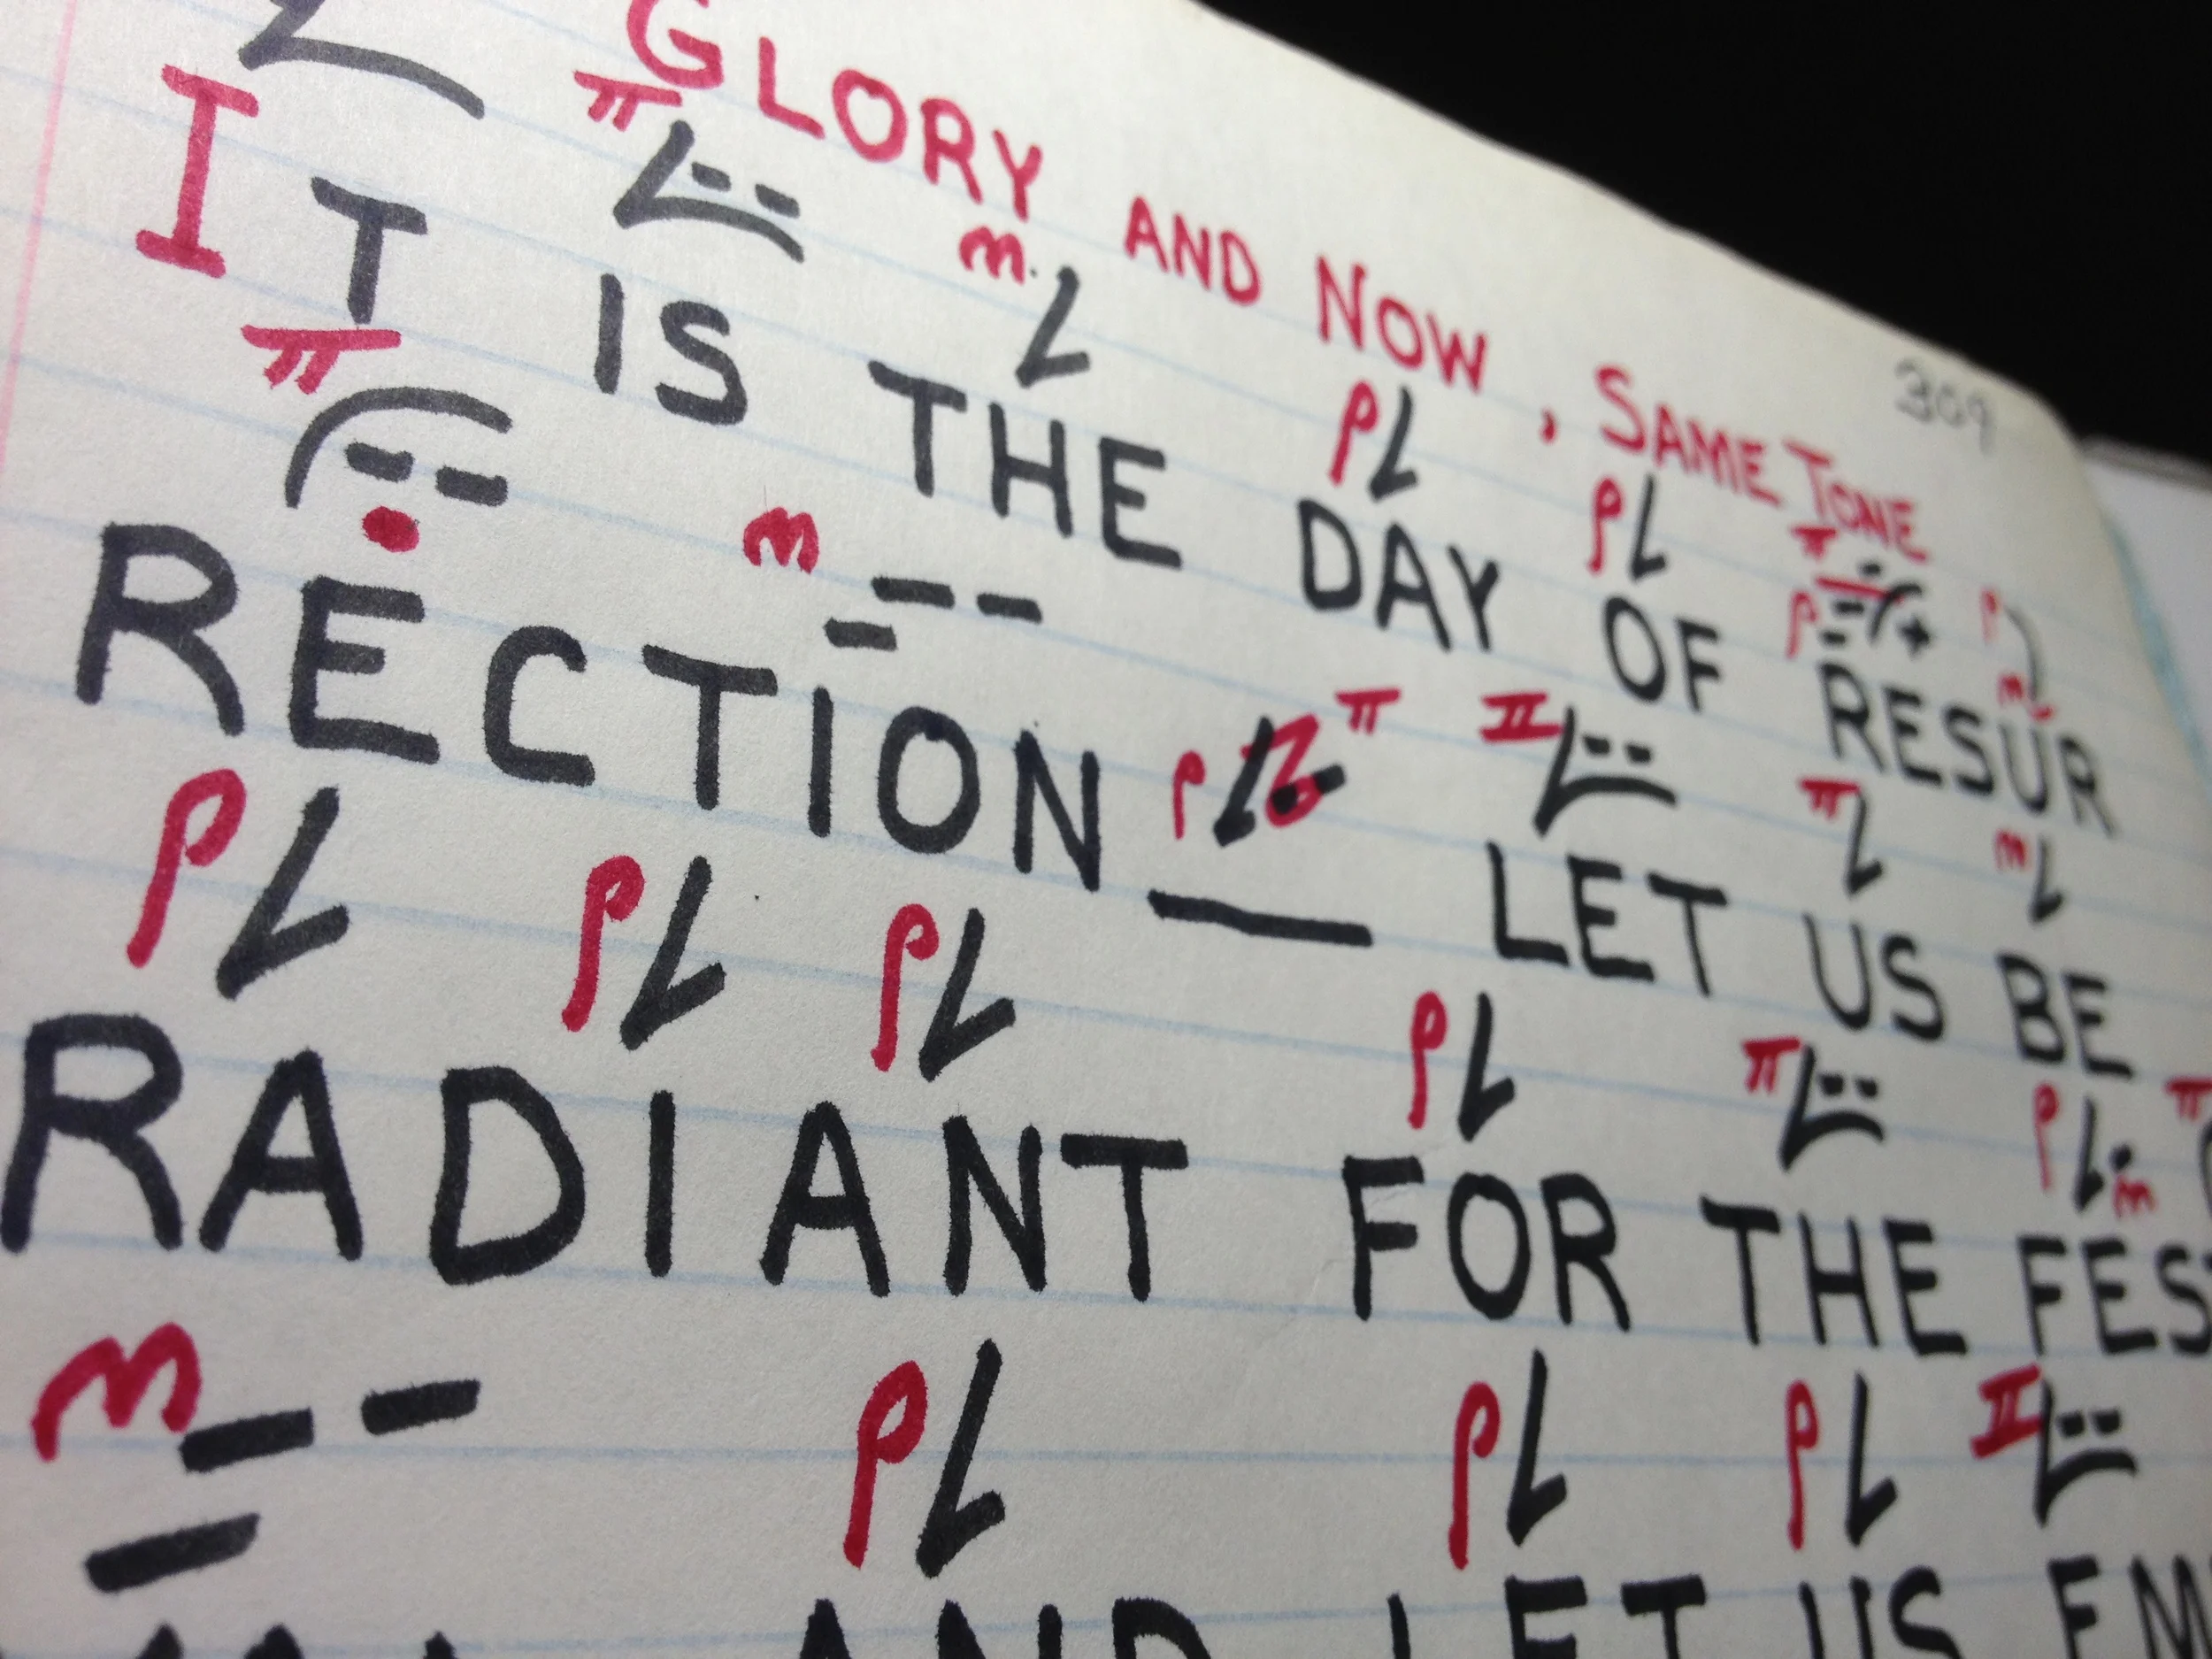 GLORY AND NOW, SAME TONE 309
IT IS THE DAY OF RESUR
RECTION — LET US BE
RADIANT FOR THE FES
AND LET US EM